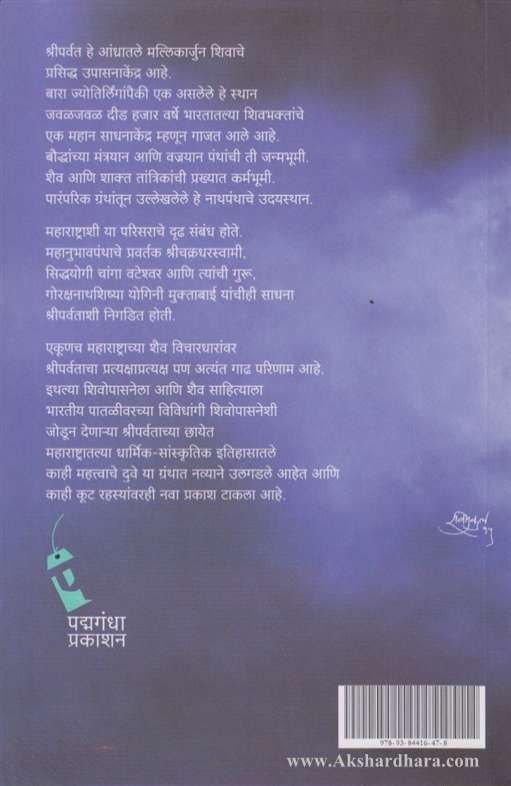 श्रीपर्वत हे आंध्रातले मल्लिकार्जुन शिवाचे
प्रसिद्ध उपासनाकेंद्र आहे.
बारा ज्योतिर्लिंगांपैकी एक असलेले हे स्थान
जवळजवळ दीड हजार वर्षे भारतातल्या शिवभक्तांचे
एक महान साधनाकेंद्र म्हणून गाजत आले आहे.
बौद्धांच्या मंत्रयान आणि वज्रयान पंथांची ती जन्मभूमी.
शैव आणि शाक्त तांत्रिकांची प्रख्यात कर्मभूमी.
पारंपरिक ग्रंथांतून उल्लेखलेले हे नाथपंथाचे उदयस्थान.
महाराष्ट्राशी या परिसराचे दृढ संबंध होते.
महानुभावपंथाचे प्रवर्तक श्रीचक्रधरस्वामी,
सिद्धयोगी चांगा वटेश्वर आणि त्यांची गुरू,
गोरक्षनाथशिष्या योगिनी मुक्ताबाई यांचीही साधना
श्रीपर्वताशी निगडित होती.
एकूणच महाराष्ट्राच्या शैव विचारधारांवर
श्रीपर्वताचा प्रत्यक्षाप्रत्यक्ष पण अत्यंत गाढ परिणाम आहे.
इथल्या शिवोपासनेला आणि शैव साहित्याला
भारतीय पातळीवरच्या विविधांगी शिवोपासनेशी
जोडून देणाऱ्या श्रीपर्वताच्या छायेत
महाराष्ट्रातल्या धार्मिक-सांस्कृतिक इतिहासातले
काही महत्त्वाचे दुवे या ग्रंथात नव्याने उलगडले आहेत आणि
काही कूट रहस्यांवरही नवा प्रकाश टाकला आहे.
पद्मगंधा
प्रकाशन
978-93-84416-47-8
www.Akshardhara.com